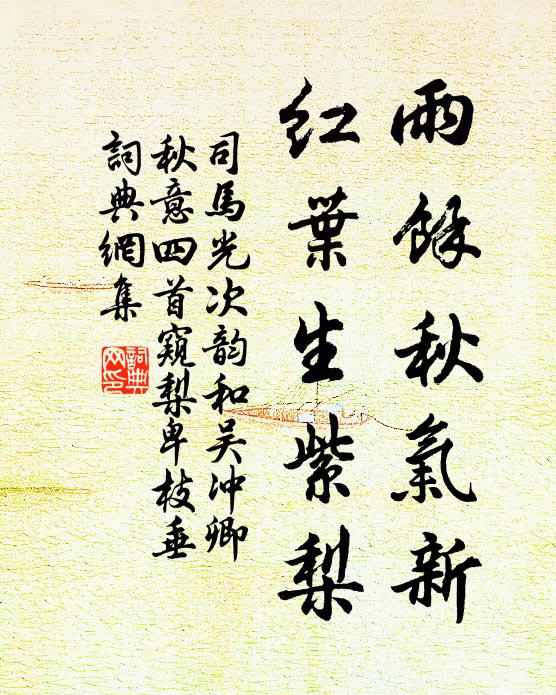 雨餘秋氣新
紅葉生紫梨
司馬光次韵和吴冲卿
秋意四首窺梨卑枝垂
詞典網集
詞典网印